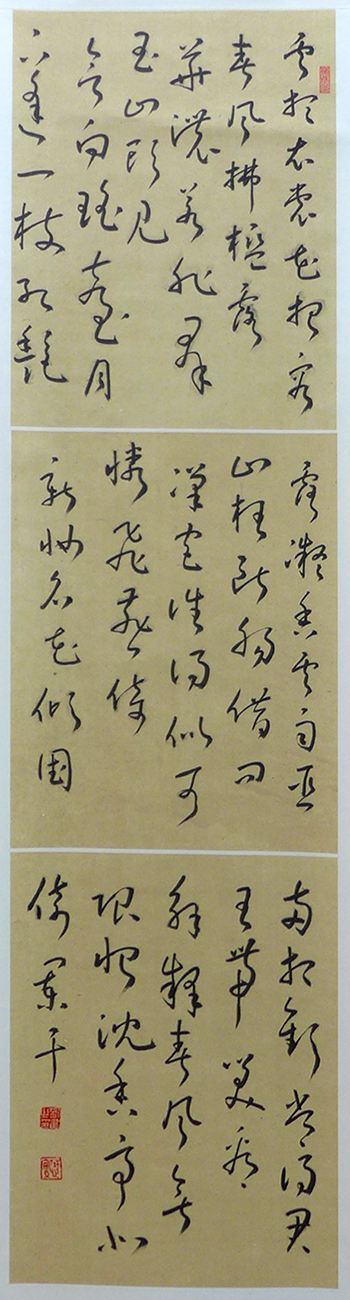 雲想衣裳花想容
春風拂檻露
華濃若非群
玉山頭見
會向瑤臺月
下逢一枝紅艷
露凝香雲雨巫
山枉斷腸借問
漢宮誰得似可
憐飛燕倚
新妝名花傾國
兩相歡常得君
王帶笑看
解釋春風無
限恨沈香亭北
倚闌干